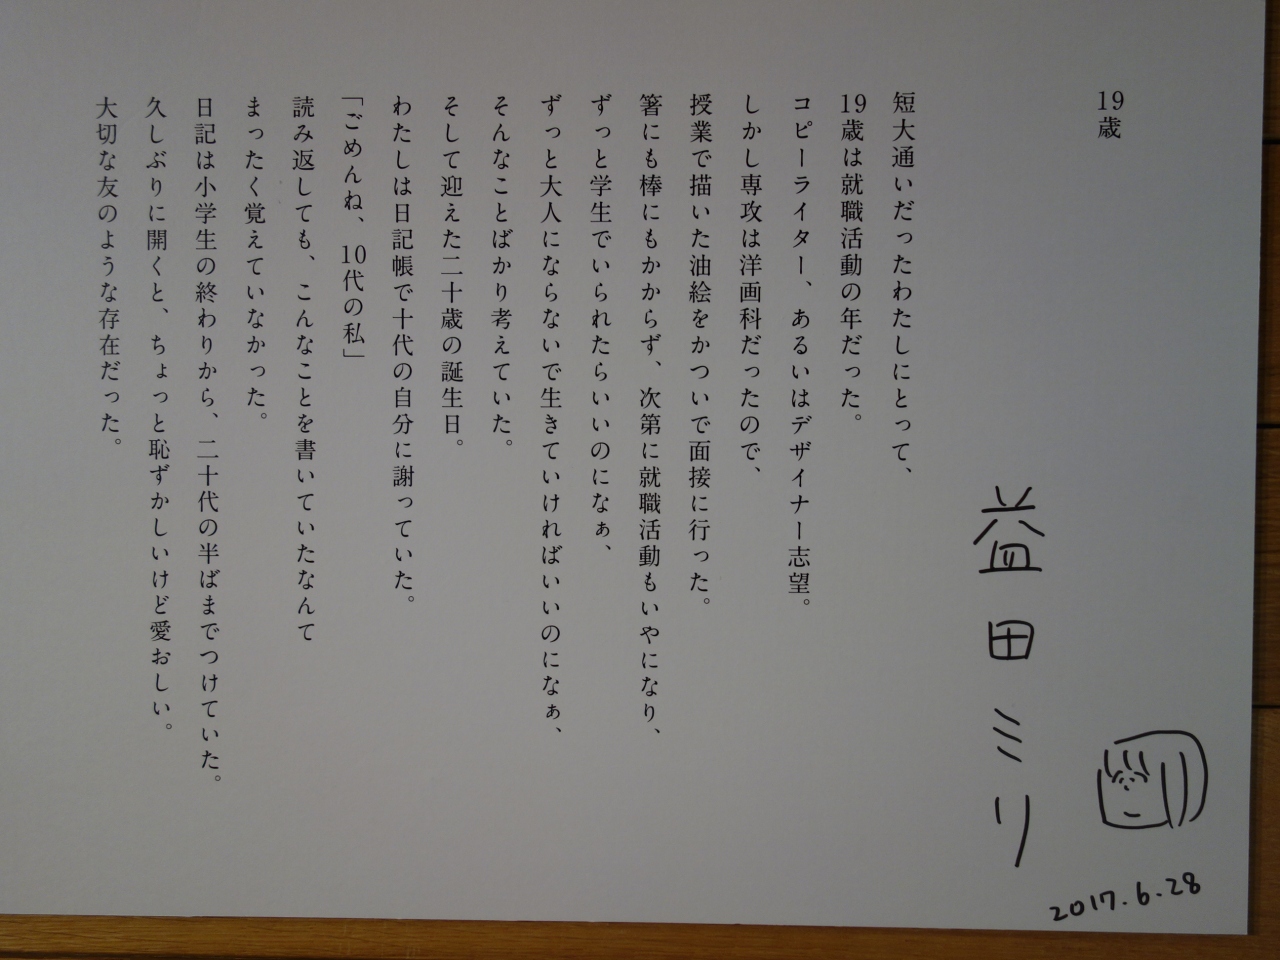 19歳
短大通いだったわたしにとって、
19歳は就職活動の年だった。
コピーライター、あるいはデザイナー志望。
しかし専攻は洋画科だったので、
授業で描いた油絵をかついで面接に行った。
箸にも棒にもかからず、次第に就職活動もいやになり、
ずっと学生でいられたらいいのになぁ、
ずっと大人にならないで生きていければいいのになぁ、
そんなことばかり考えていた。
そして迎えた二十歳の誕生日。
わたしは日記帳で十代の自分に謝っていた。
「ごめんね、10代の私」
読み返しても、こんなことを書いていたなんて
まったく覚えていなかった。
日記は小学生の終わりから、二十代の半ばまでつけていた。
久しぶりに開くと、ちょっと恥ずかしいけど愛おしい。
大切な友のような存在だった。
益田ミリ
2017.6.28